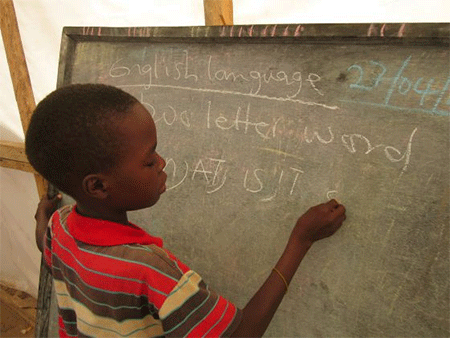 English language 27/04/
Two letter word
AT, IS, IT